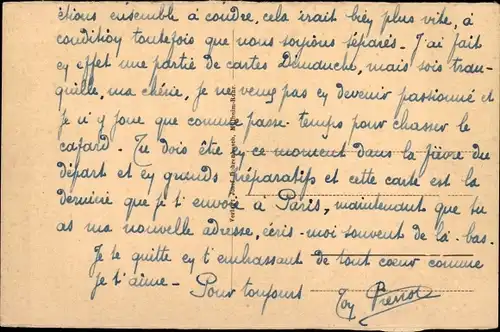 étions ensemble à coudre, cela irait biey plus vite, à
conditioy toutefois que nous soyions séparés - J'ai fait
ey effet une partie de cartes Dimanche, mais sois tran-
quille, ma chérie, je ne veux pas ey devenir passionné et
je n'y joue que comme passe-temps pour chasser le
cafard. - Tu dois être ey ce moment dans la fièvre du
départ et ey grands préparatifs et cette carte est la
dernière que je t'envoie à Paris, maintenant que tu
as ma nouvelle adresse, écris-moi souvent de là-bas.
Je te quitte ey t'embrassant de tout cœur comme
je t'aime - Pour toujours Toy Pierrot
Verlag: